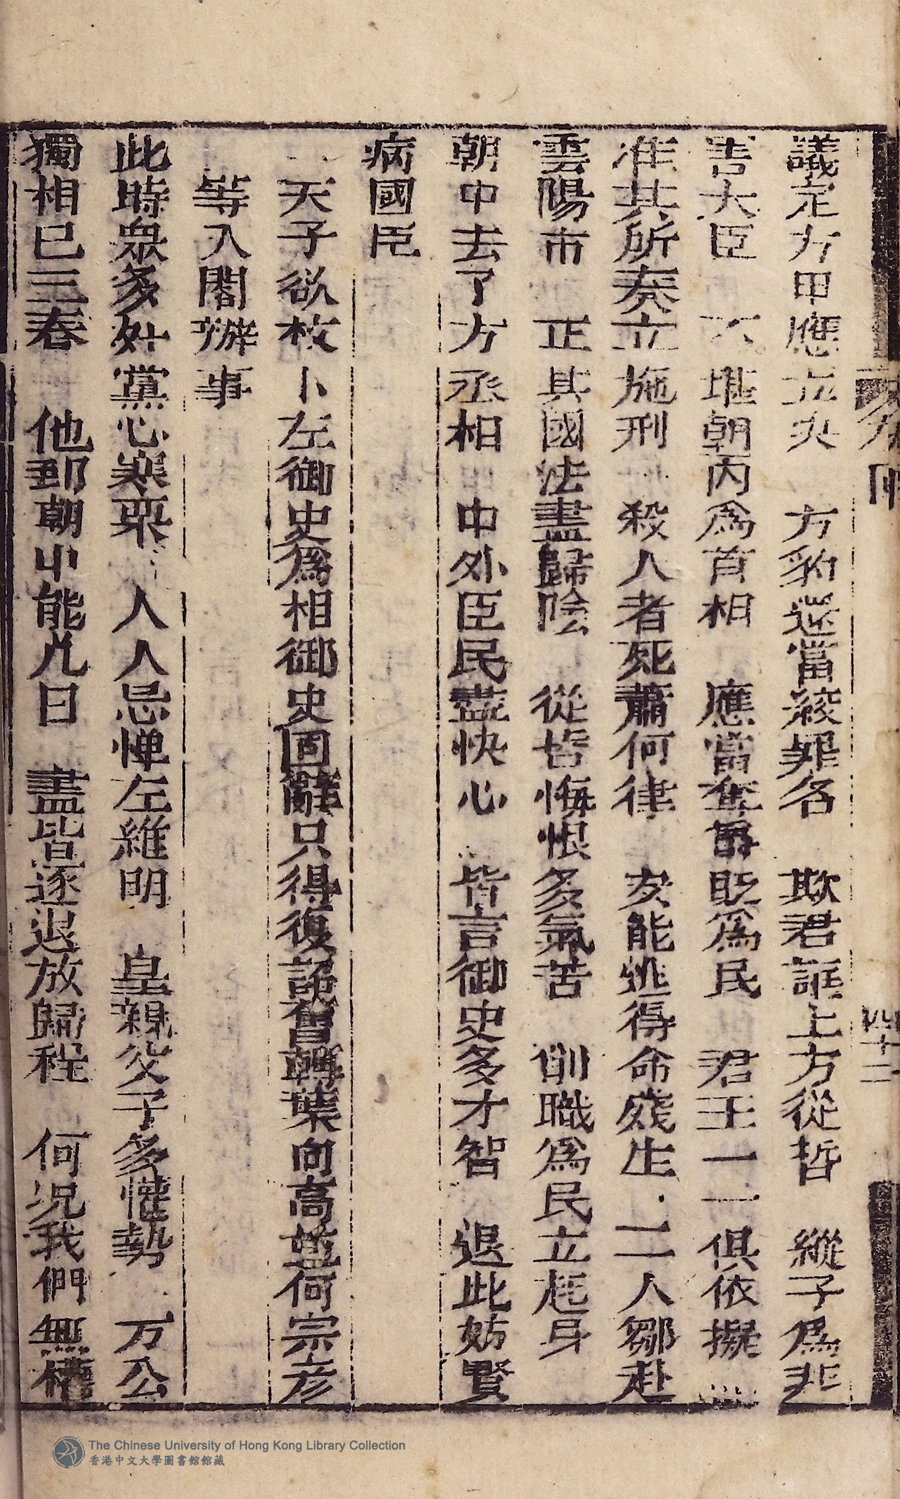 議定方甲應立决 方豹還當絞罪名 欺君誑上方從哲 縱子爲非
害大臣 不堪朝內爲首相 應當奪爵貶爲民 君王一一俱依擬
准其所奏立施刑 殺人者死蕭何律 安能逃得命殘生 二人鄒赴
雲陽市 正其國法盡歸陰 從哲悔恨多氣苦 削職爲民立起身
朝中去了方丞相 中外臣民盡快心 皆言御史多才智 退此妨賢
病國臣
天子欲枚卜左御史爲相御史固辭只得復詔曾輔葉向高並何宗彦
等入閣辦事
此時衆多奸黨心寒栗 人人忌憚左維明 皇親父子多懼勢 万公
獨相巳三春 他到朝中能几日 盡皆逐退放歸程 何况我們無權
四十二
The Chinese University of Hong Kong Library Collection
香港中文大學圖書館館藏